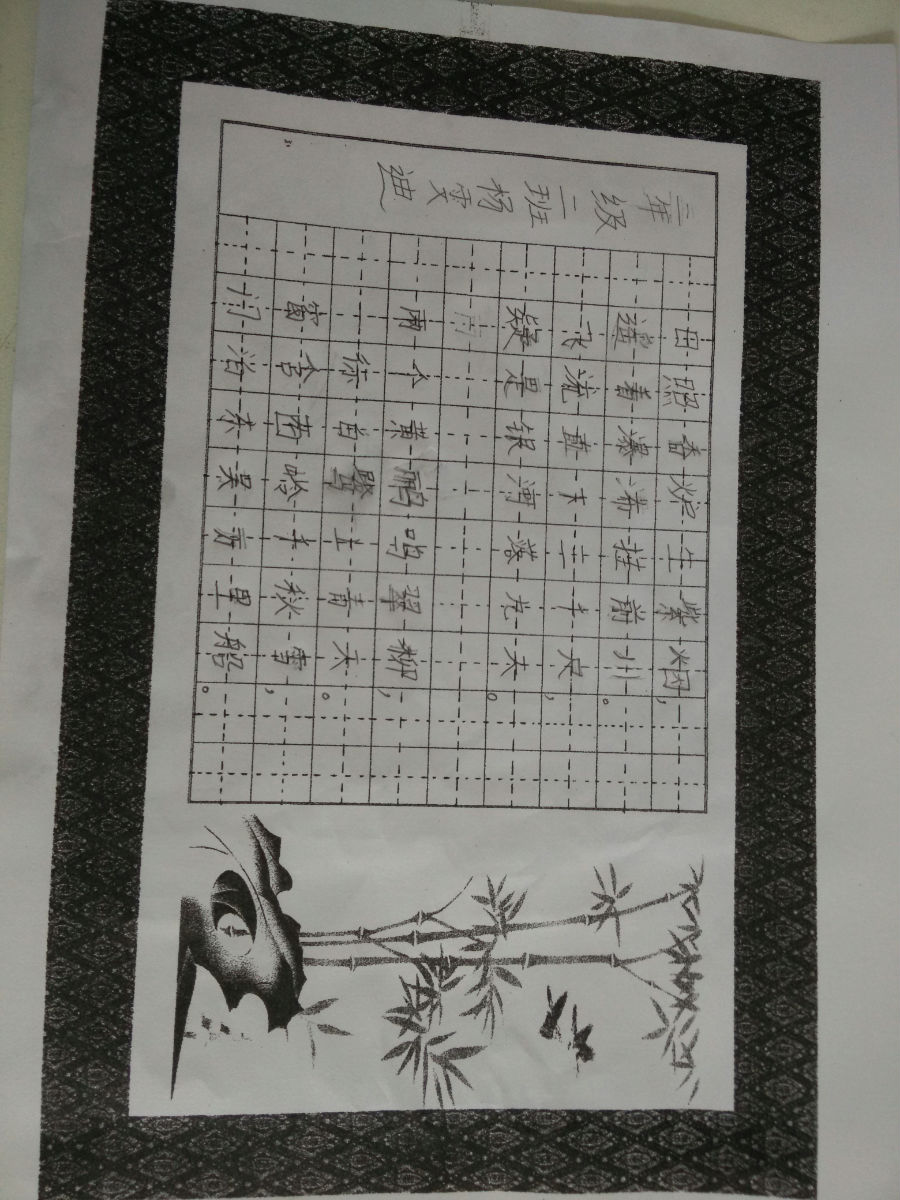 三年级二班杨雯迪
日照香炉生紫烟，
遥看瀑布挂前川。
飞流直下三千尺，
疑是银河落九天。
两个黄鹂鸣翠柳，
一行白鹭上青天。
窗含西岭千秋雪，
门泊东吴万里船。